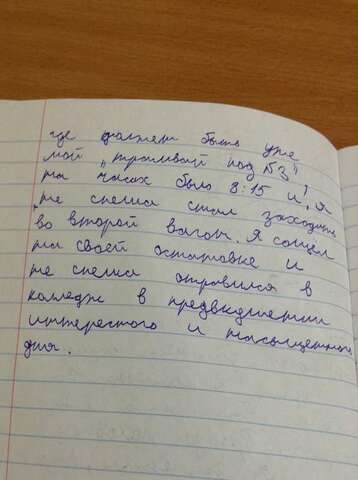 где должен быть уже
мой „трамвай под №3"!
на часах было 8:15 и я
не спеша стал заходить
во второй вагон. Я сошёл
на своей остановке и
не спеша отправился в
колледж в предвкушении
интересного и насыщенного
дня.